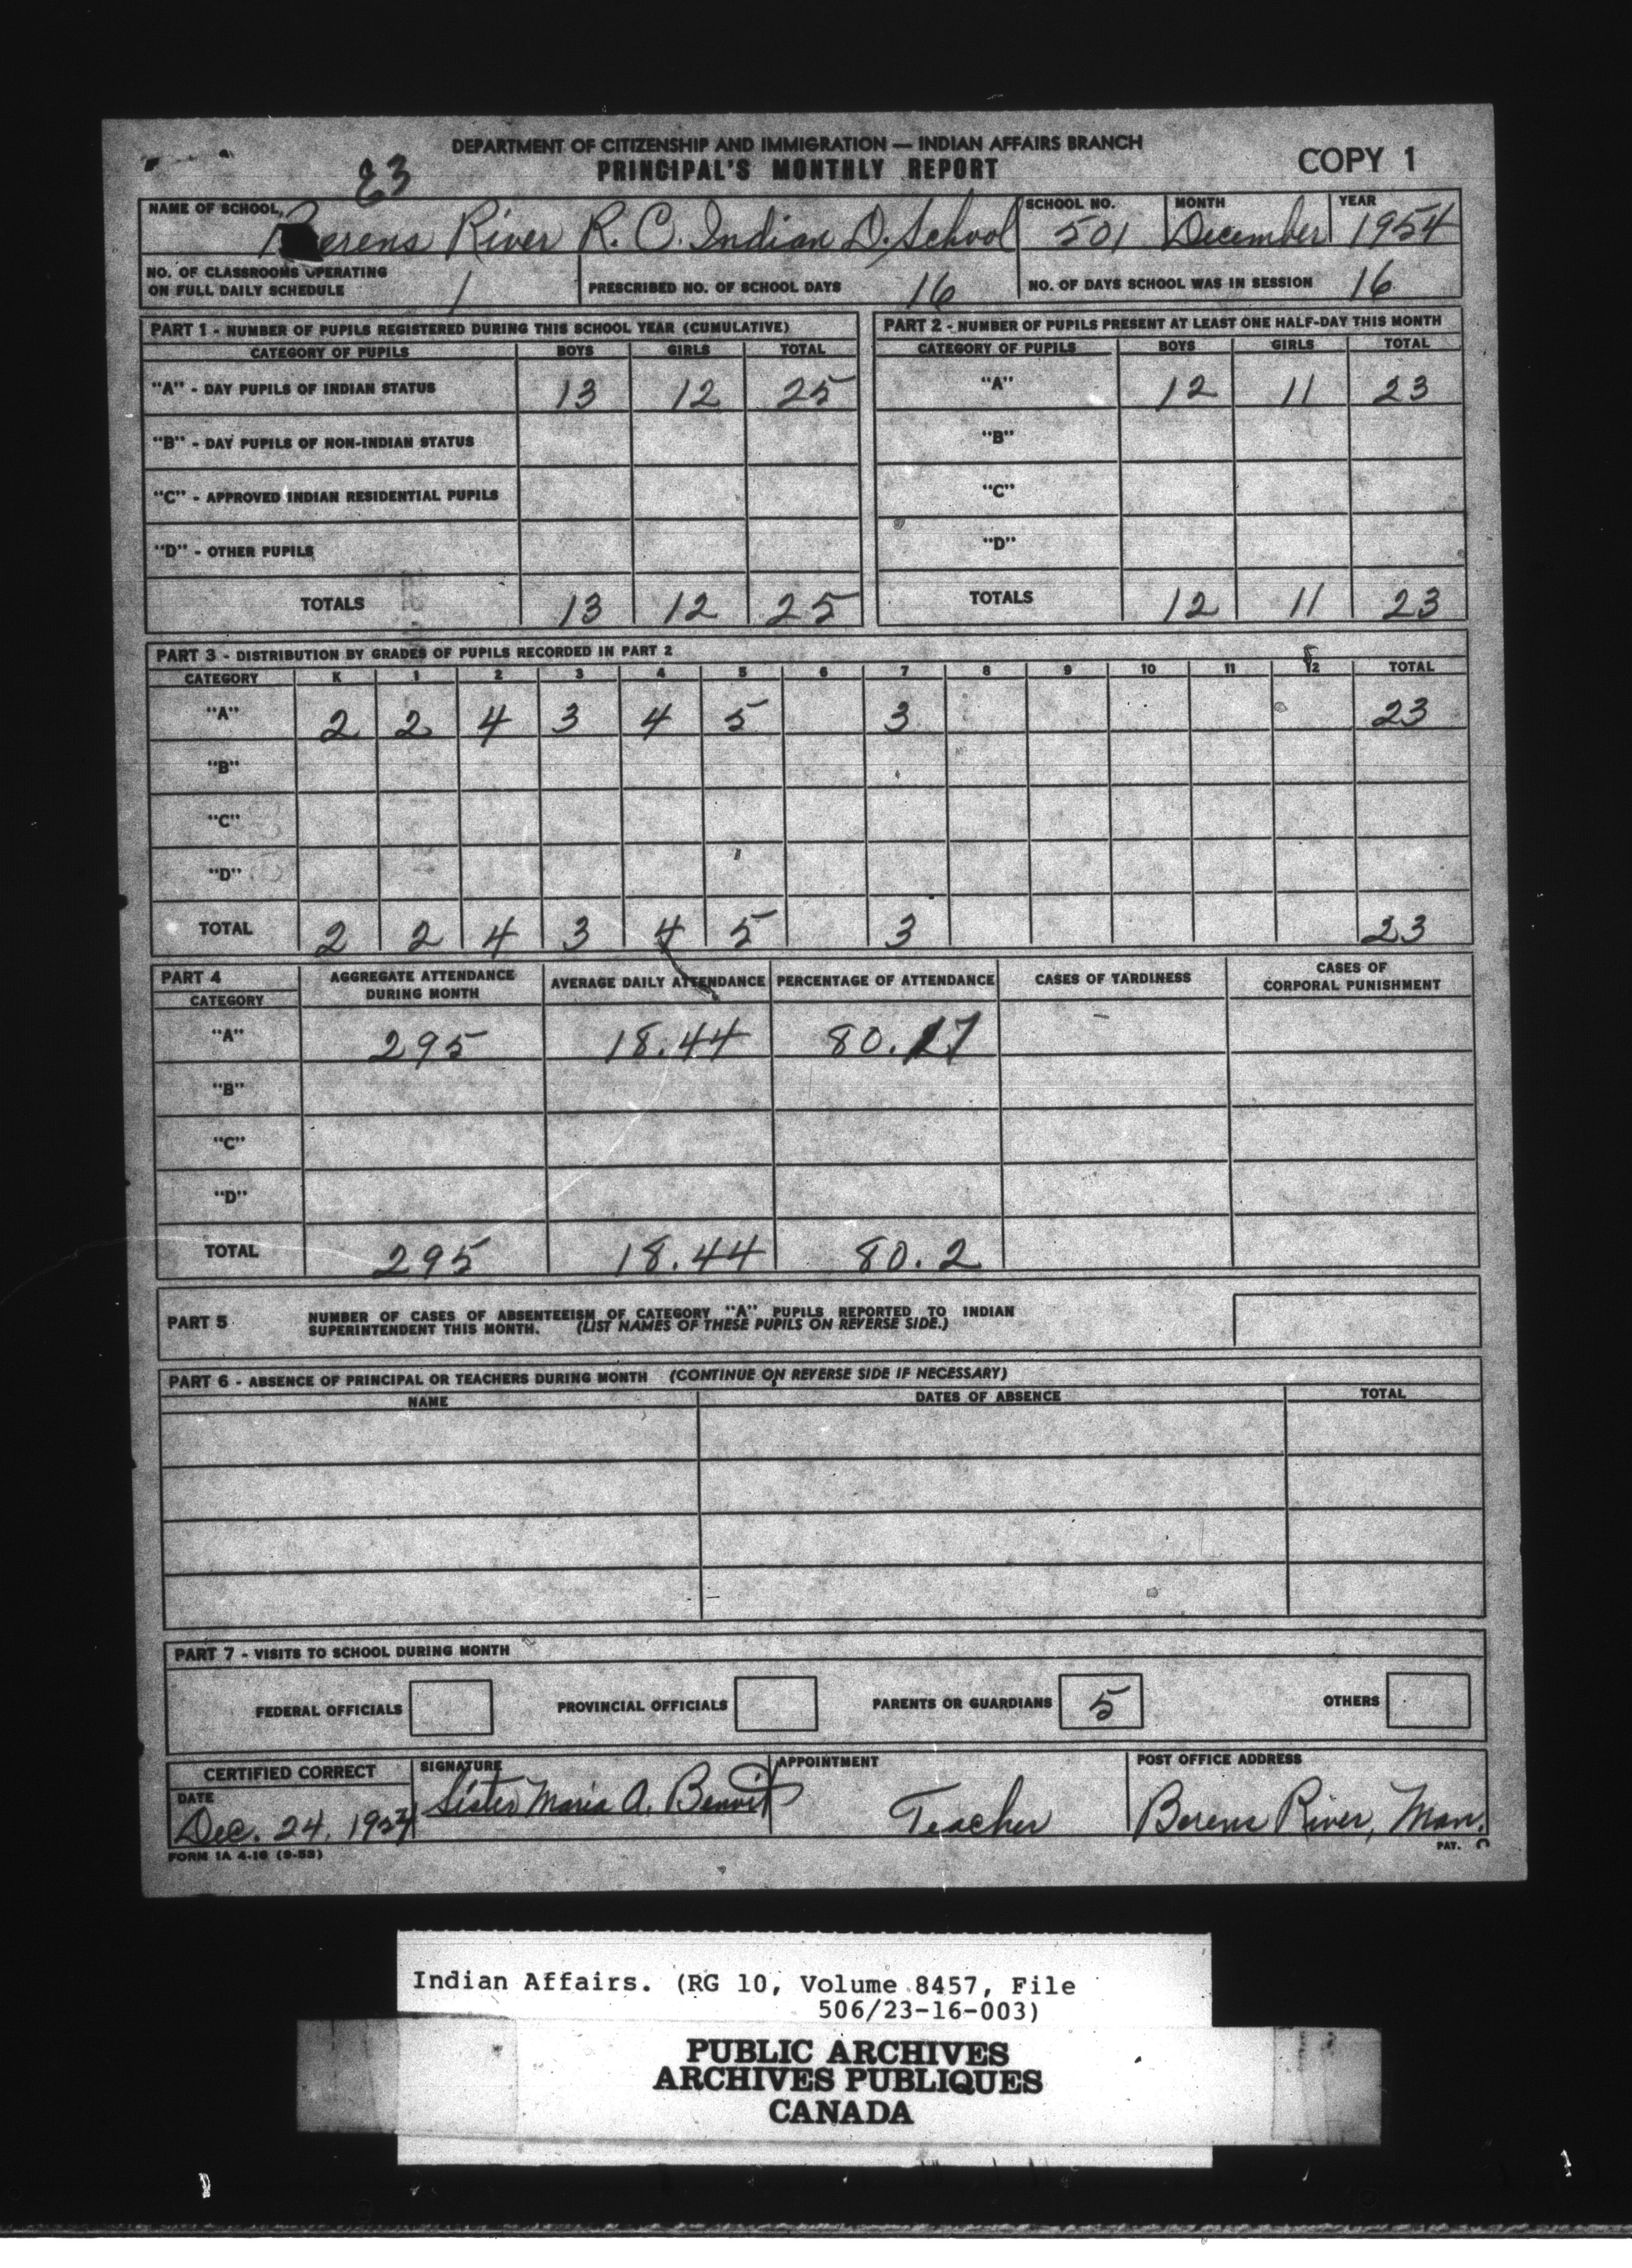 DEPARTMENT OF CITIZENSHIP AND IMMIGRATION — INDIAN AFFAIRS BRANCH
PRINCIPAL'S MONTHLY REPORT
COPY 1
E3
NAME OF SCHOOL Berens River R. C. Indian D. School SCHOOL NO. 501 MONTH December YEAR 1954
NO. OF CLASSROOMS OPERATING ON FULL DAILY SCHEDULE 1 PRESCRIBED NO. OF SCHOOL DAYS 16 NO. OF DAYS SCHOOL WAS IN SESSION 16
PART 1 - NUMBER OF PUPILS REGISTERED DURING THIS SCHOOL YEAR (CUMULATIVE)
CATEGORY OF PUPILS BOYS GIRLS TOTAL
"A" - DAY PUPILS OF INDIAN STATUS 13 12 25
"B" - DAY PUPILS OF NON-INDIAN STATUS
"C" - APPROVED INDIAN RESIDENTIAL PUPILS
"D" - OTHER PUPILS
TOTALS 13 12 25
PART 2 - NUMBER OF PUPILS PRESENT AT LEAST ONE HALF-DAY THIS MONTH
CATEGORY OF PUPILS BOYS GIRLS TOTAL
"A" 12 11 23
"B"
"C"
"D"
TOTALS 12 11 23
PART 3 - DISTRIBUTION BY GRADES OF PUPILS RECORDED IN PART 2
CATEGORY K 1 2 3 4 5 6 7 8 9 10 11 12 TOTAL
"A" 2 2 4 3 4 5 3 23
"B"
"C"
"D"
TOTAL 2 2 4 3 4 5 3 23
PART 4
CATEGORY AGGREGATE ATTENDANCE DURING MONTH AVERAGE DAILY ATTENDANCE PERCENTAGE OF ATTENDANCE CASES OF TARDINESS CASES OF CORPORAL PUNISHMENT
"A" 295 18.44 80.17 -
"B"
"C"
"D"
TOTAL 295 18.44 80.2
PART 5 NUMBER OF CASES OF ABSENTEEISM OF CATEGORY "A" PUPILS REPORTED TO INDIAN
SUPERINTENDENT THIS MONTH. (LIST NAMES OF THESE PUPILS ON REVERSE SIDE.)
PART 6 - ABSENCE OF PRINCIPAL OR TEACHERS DURING MONTH (CONTINUE ON REVERSE SIDE IF NECESSARY)
NAME DATES OF ABSENCE TOTAL
PART 7 - VISITS TO SCHOOL DURING MONTH
FEDERAL OFFICIALS PROVINCIAL OFFICIALS PARENTS OR GUARDIANS 5 OTHERS
CERTIFIED CORRECT SIGNATURE APPOINTMENT POST OFFICE ADDRESS
DATE
Dec. 24, 1954 Sister Maria A. Benoit Teacher Berens River, Man.
FORM 1A 4-16 (9-53)
PAT.
Indian Affairs. (RG 10, Volume 8457, File
506/23-16-003)
PUBLIC ARCHIVES
ARCHIVES PUBLIQUES
CANADA